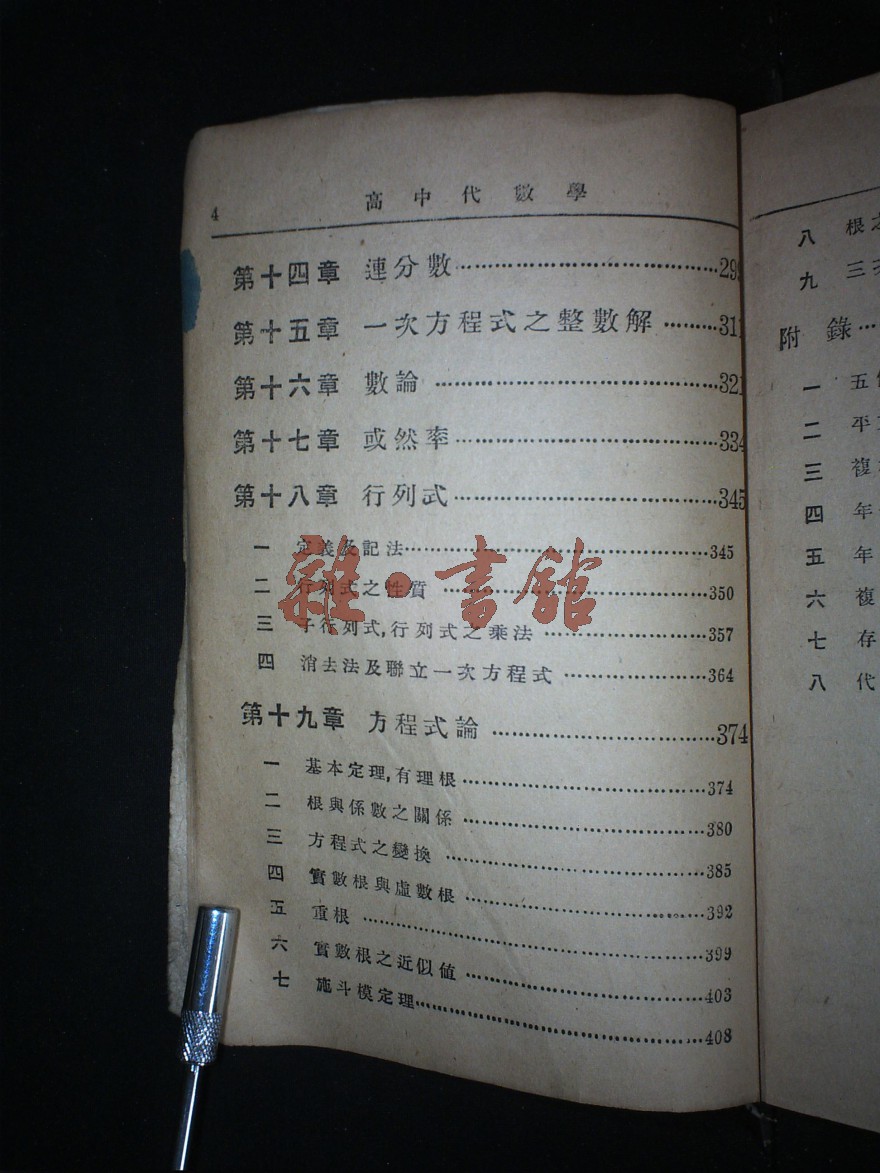 4 高中代數學
第十四章 連分數……29
第十五章 一次方程式之整數解……311
第十六章 數論……321
第十七章 或然率……334
第十八章 行列式……345
一 定義及記法……345
二 行列式之性質……350
三 子行列式,行列式之乘法……357
四 消去法及聯立一次方程式……364
第十九章 方程式論……374
一 基本定理,有理根……374
二 根與係數之關係……380
三 方程式之變換……385
四 實數根與虛數根……392
五 重根……399
六 實數根之近似值……403
七 施斗模定理……408
雜·書館
八 根之
九 三
附錄…
一 五
二 平
三 複
四 年
五 年
六 複
七 存
八 代